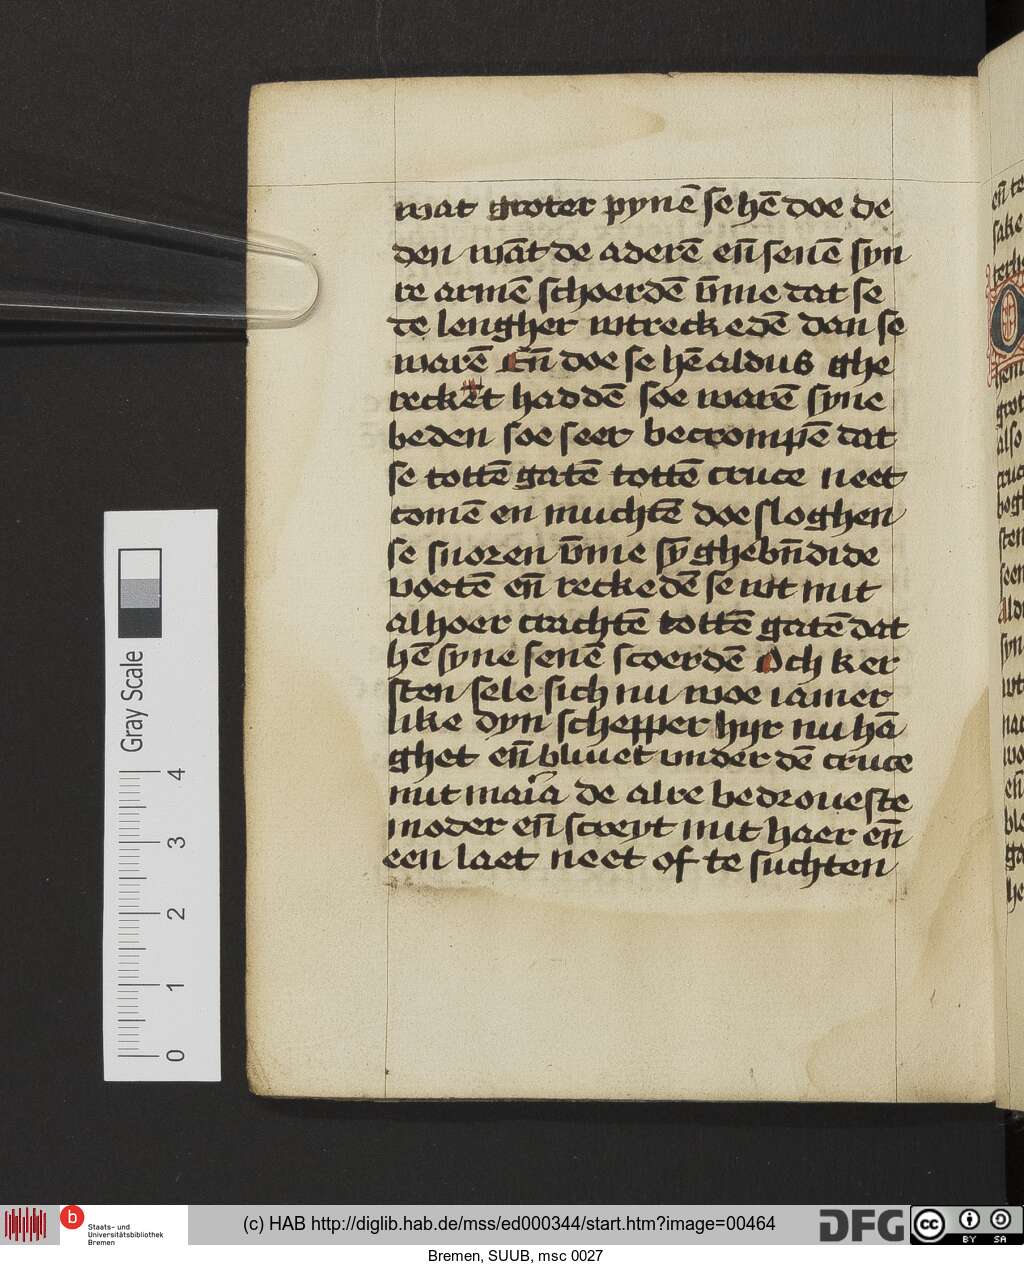 wat groter pynē se hē doe de
den wāt de aderē eñ senē syn
re armē schoerdē v̄me dat se
te lengher wtreckedē dan se
warē Eñ doe se hē aldus ghe
recket haddē soe warē syne
beden soe seer becrompē dat
se tottē gatē tottē cruce neet
comē en muchtē doe sloghen
se snoren v̄me sȳ ghebn̄dide
voetē eñ reckedē se wt mit
al hoer crachtē tottē gatē dat
hē syne senē scoerdē Och ker
sten sele sich nu woe iamer
like dyn schepper hyr nu hā
ghet eñ bliuet under dē cruce
mit maria de alre bedroueste
moder eñ screyt mit haer eñ
een laet neet of te suchten
eñ te
sake
O
hem
grot
also
cruc
begh
sten
seen
Alde
syn
wt
nac
wo
eñ
blo
ga
he
Gray Scale
4
3
2
1
0
b
Staats- und
Universitätsbibliothek
Bremen
(c) HAB http://diglib.hab.de/mss/ed000344/start.htm?image=00464
DFG
cc
BY SA
Bremen, SUUB, msc 0027